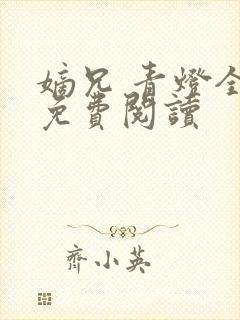 嫡兄 青燈全
免費閱讀
齊小英